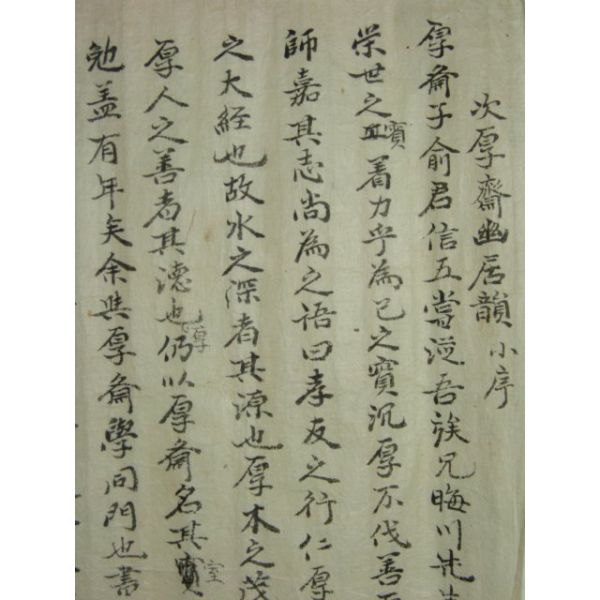 次厚齋幽居韻 小序
厚齋子俞君信五嘗從吾族兄晦川先
榮世之實著力乎為己之實沉厚不伐善
師嘉其志尚為之語曰孝友之行仁厚
之大經也故水之深者其源也厚木之茂
厚人之善者其德也厚仍以厚齋名其室
勉盖有年矣余與厚齋學同門也書